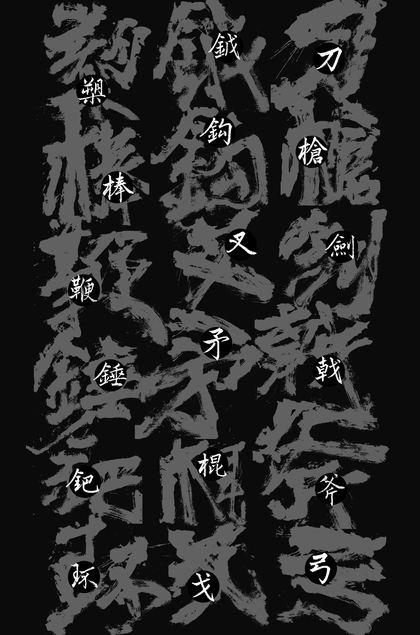 刀槍劍戟斧弓
鉞鈎叉矛棍戈
槊棒鞭錘鈀